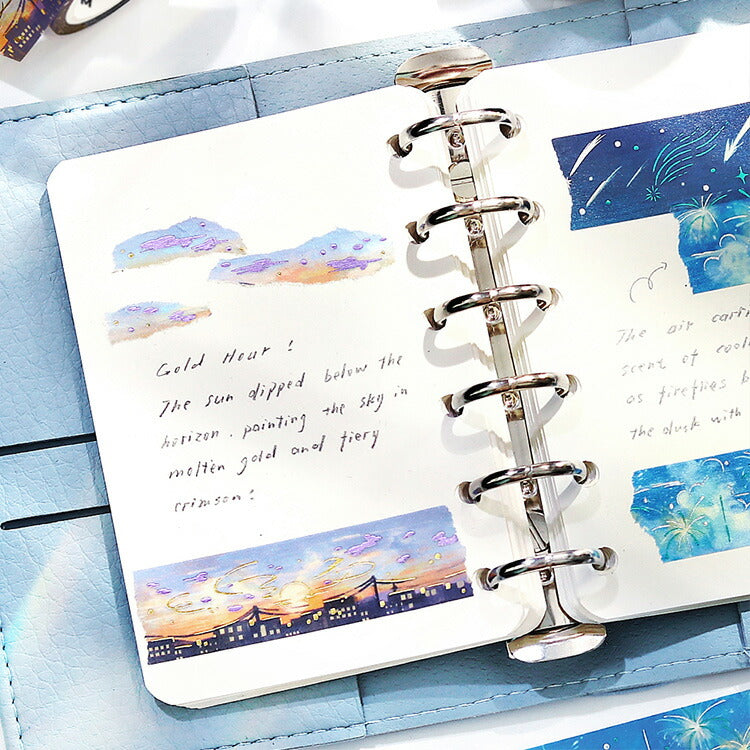 Gold Hour !
The sun dipped below the
horizon, painting the sky in
molten gold and fiery
crimson!
The air
scent of
as fireflies
the dusk with